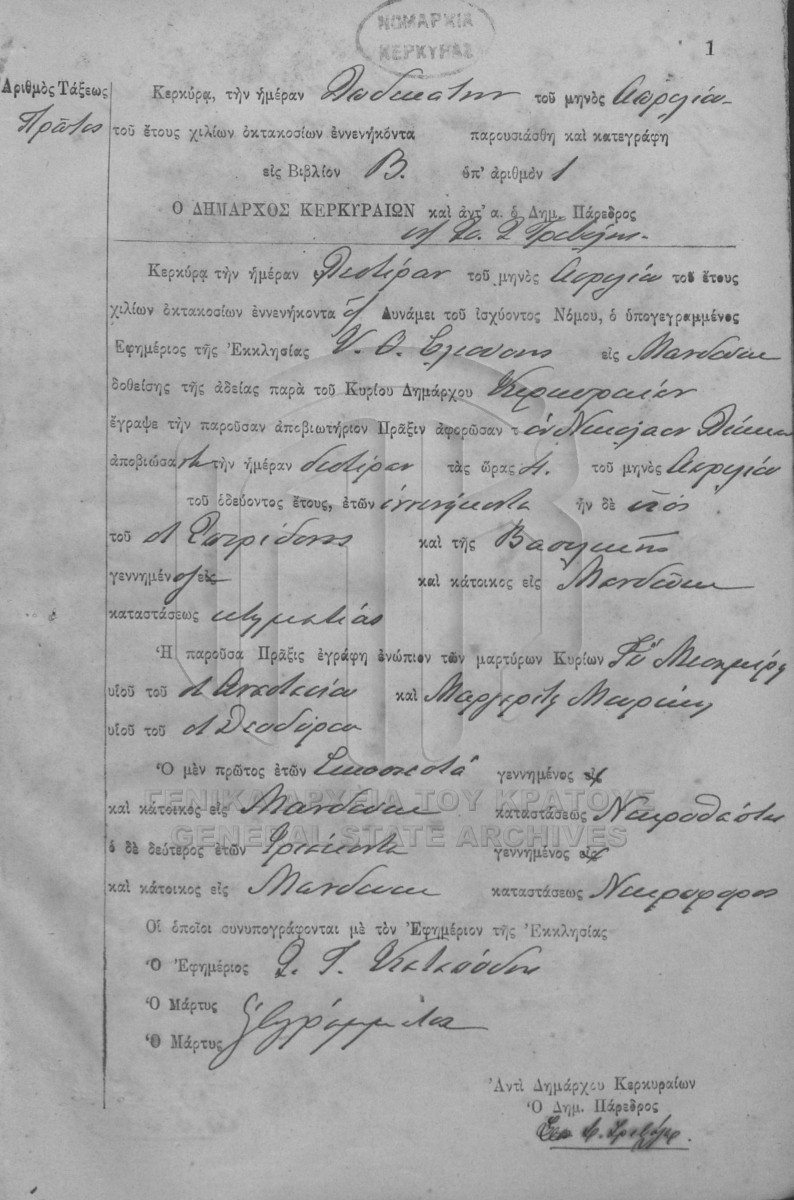 ΝΟΜΑΡΧΙΑ
ΚΕΡΚΥΡΑΣ
1
Ἀριθμὸς Τάξεως
Πρῶτος
Κερκύρᾳ, τὴν ἡμέραν Δωδεκάτην τοῦ μηνὸς Ἀπριλίου
τοῦ ἔτους χιλίων ὀκτακοσίων ἐννενήκοντα παρουσιάσθη καὶ κατεγράφη
εἰς Βιβλίον Β. ὑπ' ἀριθμὸν 1
Ο ΔΗΜΑΡΧΟΣ ΚΕΡΚΥΡΑΙΩΝ καὶ ἀντ' α. ὁ Δημ. Πάρεδρος
Κερκύρᾳ τὴν ἡμέραν Δευτέραν τοῦ μηνὸς Ἀπριλίου τοῦ ἔτους
χιλίων ὀκτακοσίων ἐννενήκοντα Δυνάμει τοῦ ἰσχύοντος Νόμου, ὁ ὑπογεγραμμένος
Ἐφημέριος τῆς Ἐκκλησίας Υ. Θ. Ἐλεούσης εἰς Μανδούκι
δοθείσης τῆς ἀδείας παρὰ τοῦ Κυρίου Δημάρχου Κερκυραίων
ἔγραψε τὴν παροῦσαν ἀποβιωτήριον Πρᾶξιν ἀφορῶσαν τὸν Νικόλαον
ἀποβιώσαντα τὴν ἡμέραν δευτέραν τὰς ὥρας 4. τοῦ μηνὸς Ἀπριλίου
τοῦ ὁδεύοντος ἔτους, ἐτῶν ἐννενήκοντα ἦν δὲ υἱὸς
τοῦ Σπυρίδωνος καὶ τῆς Βασιλικῆς
γεννημένος εἰς καὶ κάτοικος εἰς Μανδούκι
καταστάσεως κτηματίας
Ἡ παροῦσα Πρᾶξις ἐγράφη ἐνώπιον τῶν μαρτύρων Κυρίων
υἱοῦ τοῦ Ἀναστασίου καὶ Μαργαρίτη
υἱοῦ τοῦ Θεοδώρου
Ὁ μὲν πρῶτος ἐτῶν γεννημένος εἰς
καὶ κάτοικος εἰς Μανδούκι καταστάσεως Νεκροθάπτης
ΓΕΝΙΚΑ ΑΡΧΕΙΑ ΤΟΥ ΚΡΑΤΟΥΣ
GENERAL STATE ARCHIVES
ὁ δὲ δεύτερος ἐτῶν Τριάκοντα γεννημένος εἰς
καὶ κάτοικος εἰς Μανδούκι καταστάσεως Νεκροφόρος
Οἱ ὁποῖοι συνυπογράφονται μὲ τὸν Ἐφημέριον τῆς Ἐκκλησίας
Ὁ Ἐφημέριος
Ὁ Μάρτυς
Ὁ Μάρτυς ἀγράμματοι
Ἀντὶ Δημάρχου Κερκυραίων
Ὁ Δημ. Πάρεδρος